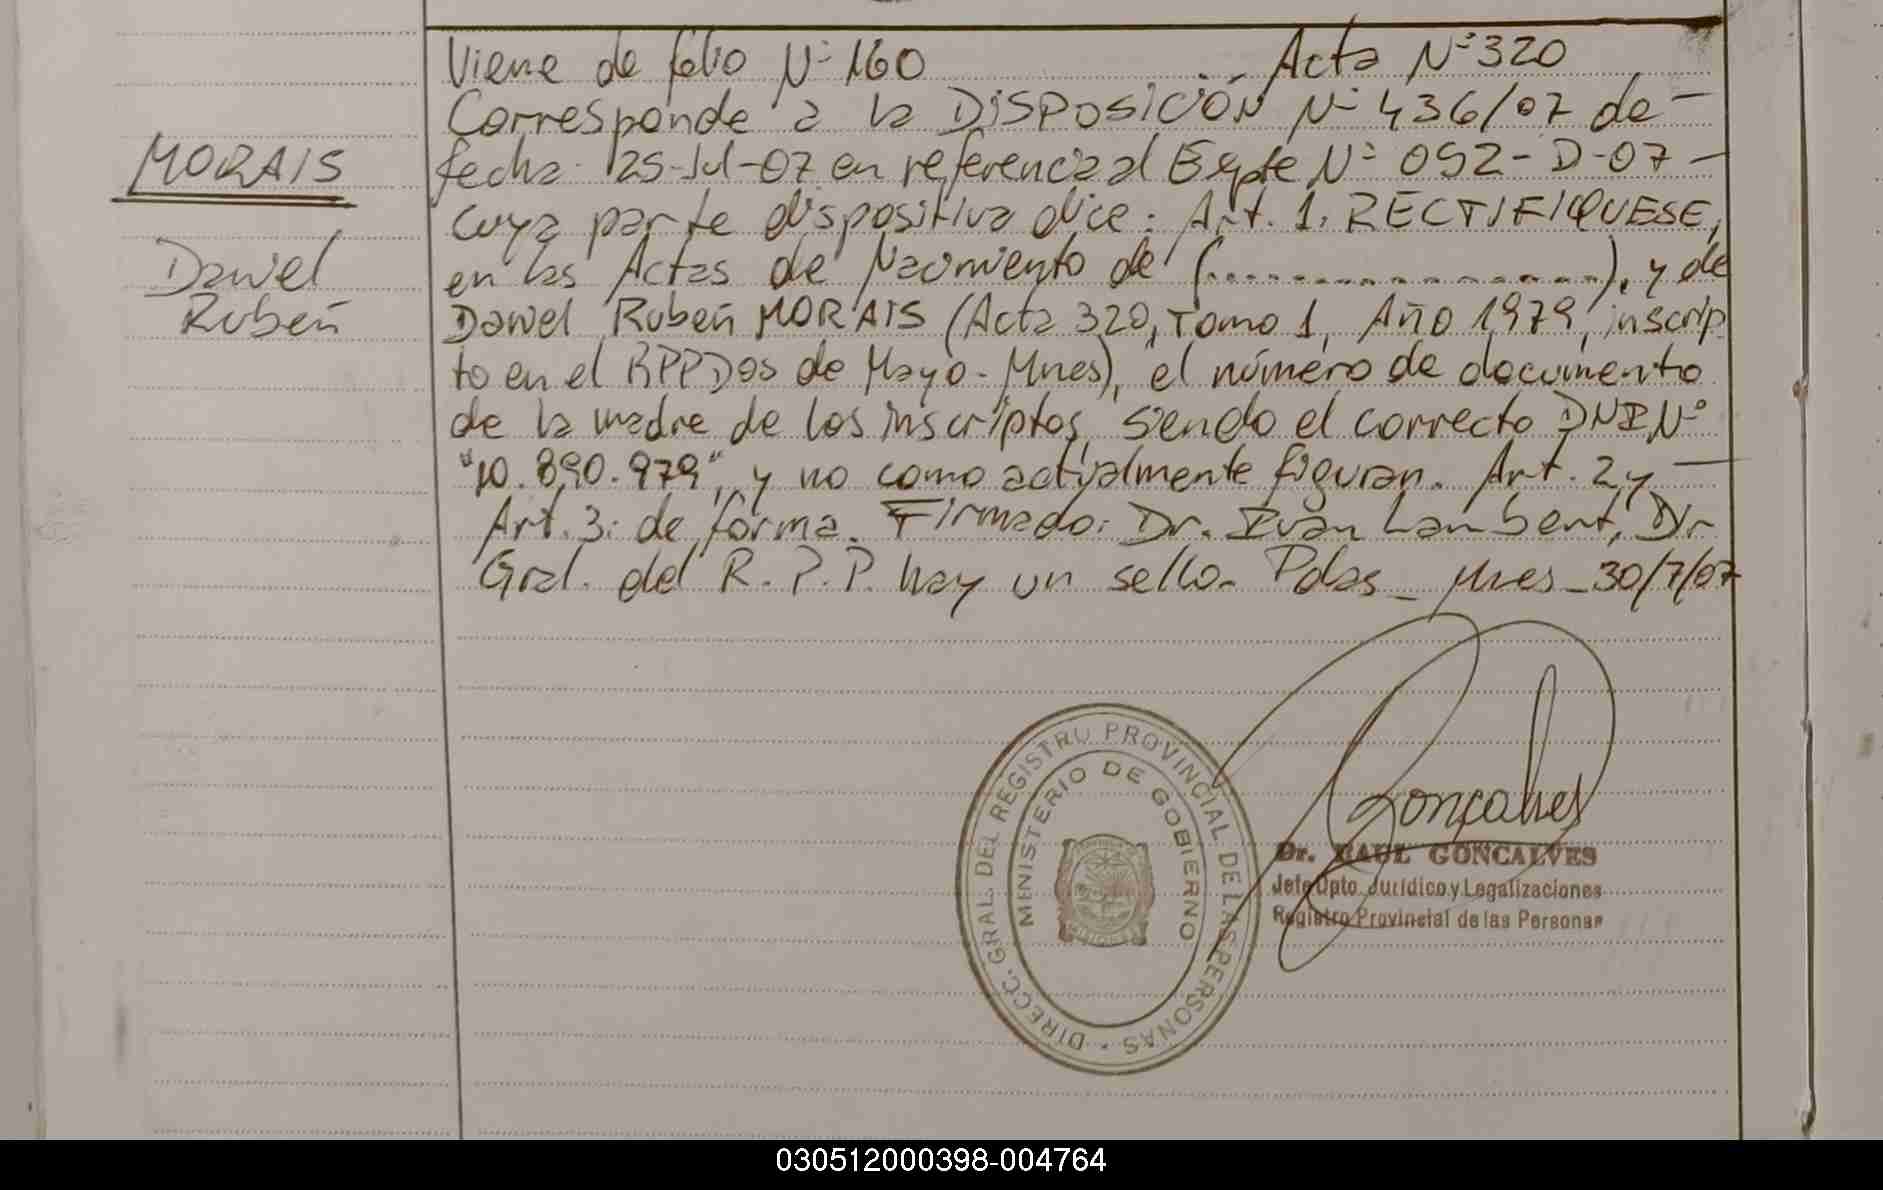 Viene de folio Nº 160 Acta Nº 320
Corresponde a la DISPOSICIÓN Nº 436/07 de
fecha 25-Jul-07 en referencia al Expte Nº 092-D-07
cuya parte dispositiva dice: Art. 1. RECTIFIQUESE,
en las Actas de Nacimiento de (................), y de
Daniel Rubén MORAIS (Acta 320, Tomo 1, Año 1979, inscrip
to en el RPPDos de Mayo-Mnes), el número de documento
de la madre de los inscriptos, siendo el correcto DNI Nº
"10.890.979", y no como actualmente figuran. Art. 2 y
Art. 3: de forma. Firmado: Dr. Iván Lambert, Dir
Gral. del R.P.P. hay un sello. Pdas - Mnes - 30/7/07
MORAIS
Daniel
Rubén
DIRECC. GRAL. DEL REGISTRO PROVINCIAL DE LAS PERSONAS
MENISTERIO DE GOBIERNO
Gonçalves
Dr. RAUL GONCALVES
Jefe Dpto. Jurídico y Legalizaciones
Registro Provincial de las Personas
030512000398-004764